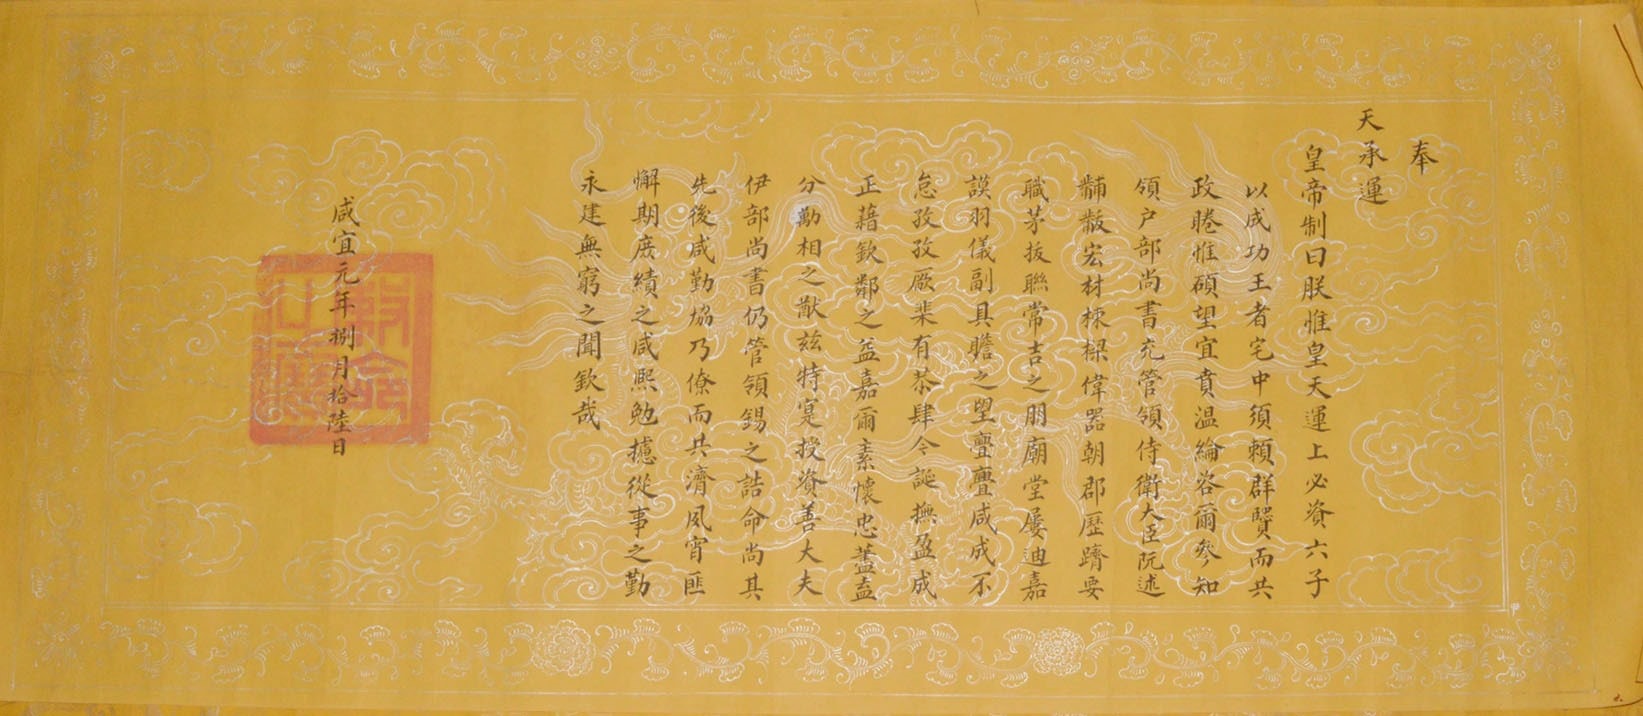 奉
天承運
皇帝制曰朕惟皇天運上必資六子
以成功王者宅中須賴群賢而共
政睠惟碩望宜賁温綸咨爾參知
領户部尚書充管領侍衛大臣阮述
黼黻宏材棟樑偉器朝郡歷躋要
職茅拔聯常吉之朋廟堂屢迪嘉
謨羽儀副具瞻之望亹亹咸成不
怠孜孜厥棐有恭肆令誕撫盈成
正藉欽鄰之益嘉爾素懷忠藎盍
分勷相之猷兹特寔授資善大夫
伊部尚書仍管領錫之誥命尚其
先後咸勤協乃僚而共濟夙宵匪
懈期庶績之咸熙勉攄從事之勤
永建無窮之聞欽哉
咸宜元年捌月拾陸日
敕命之寶